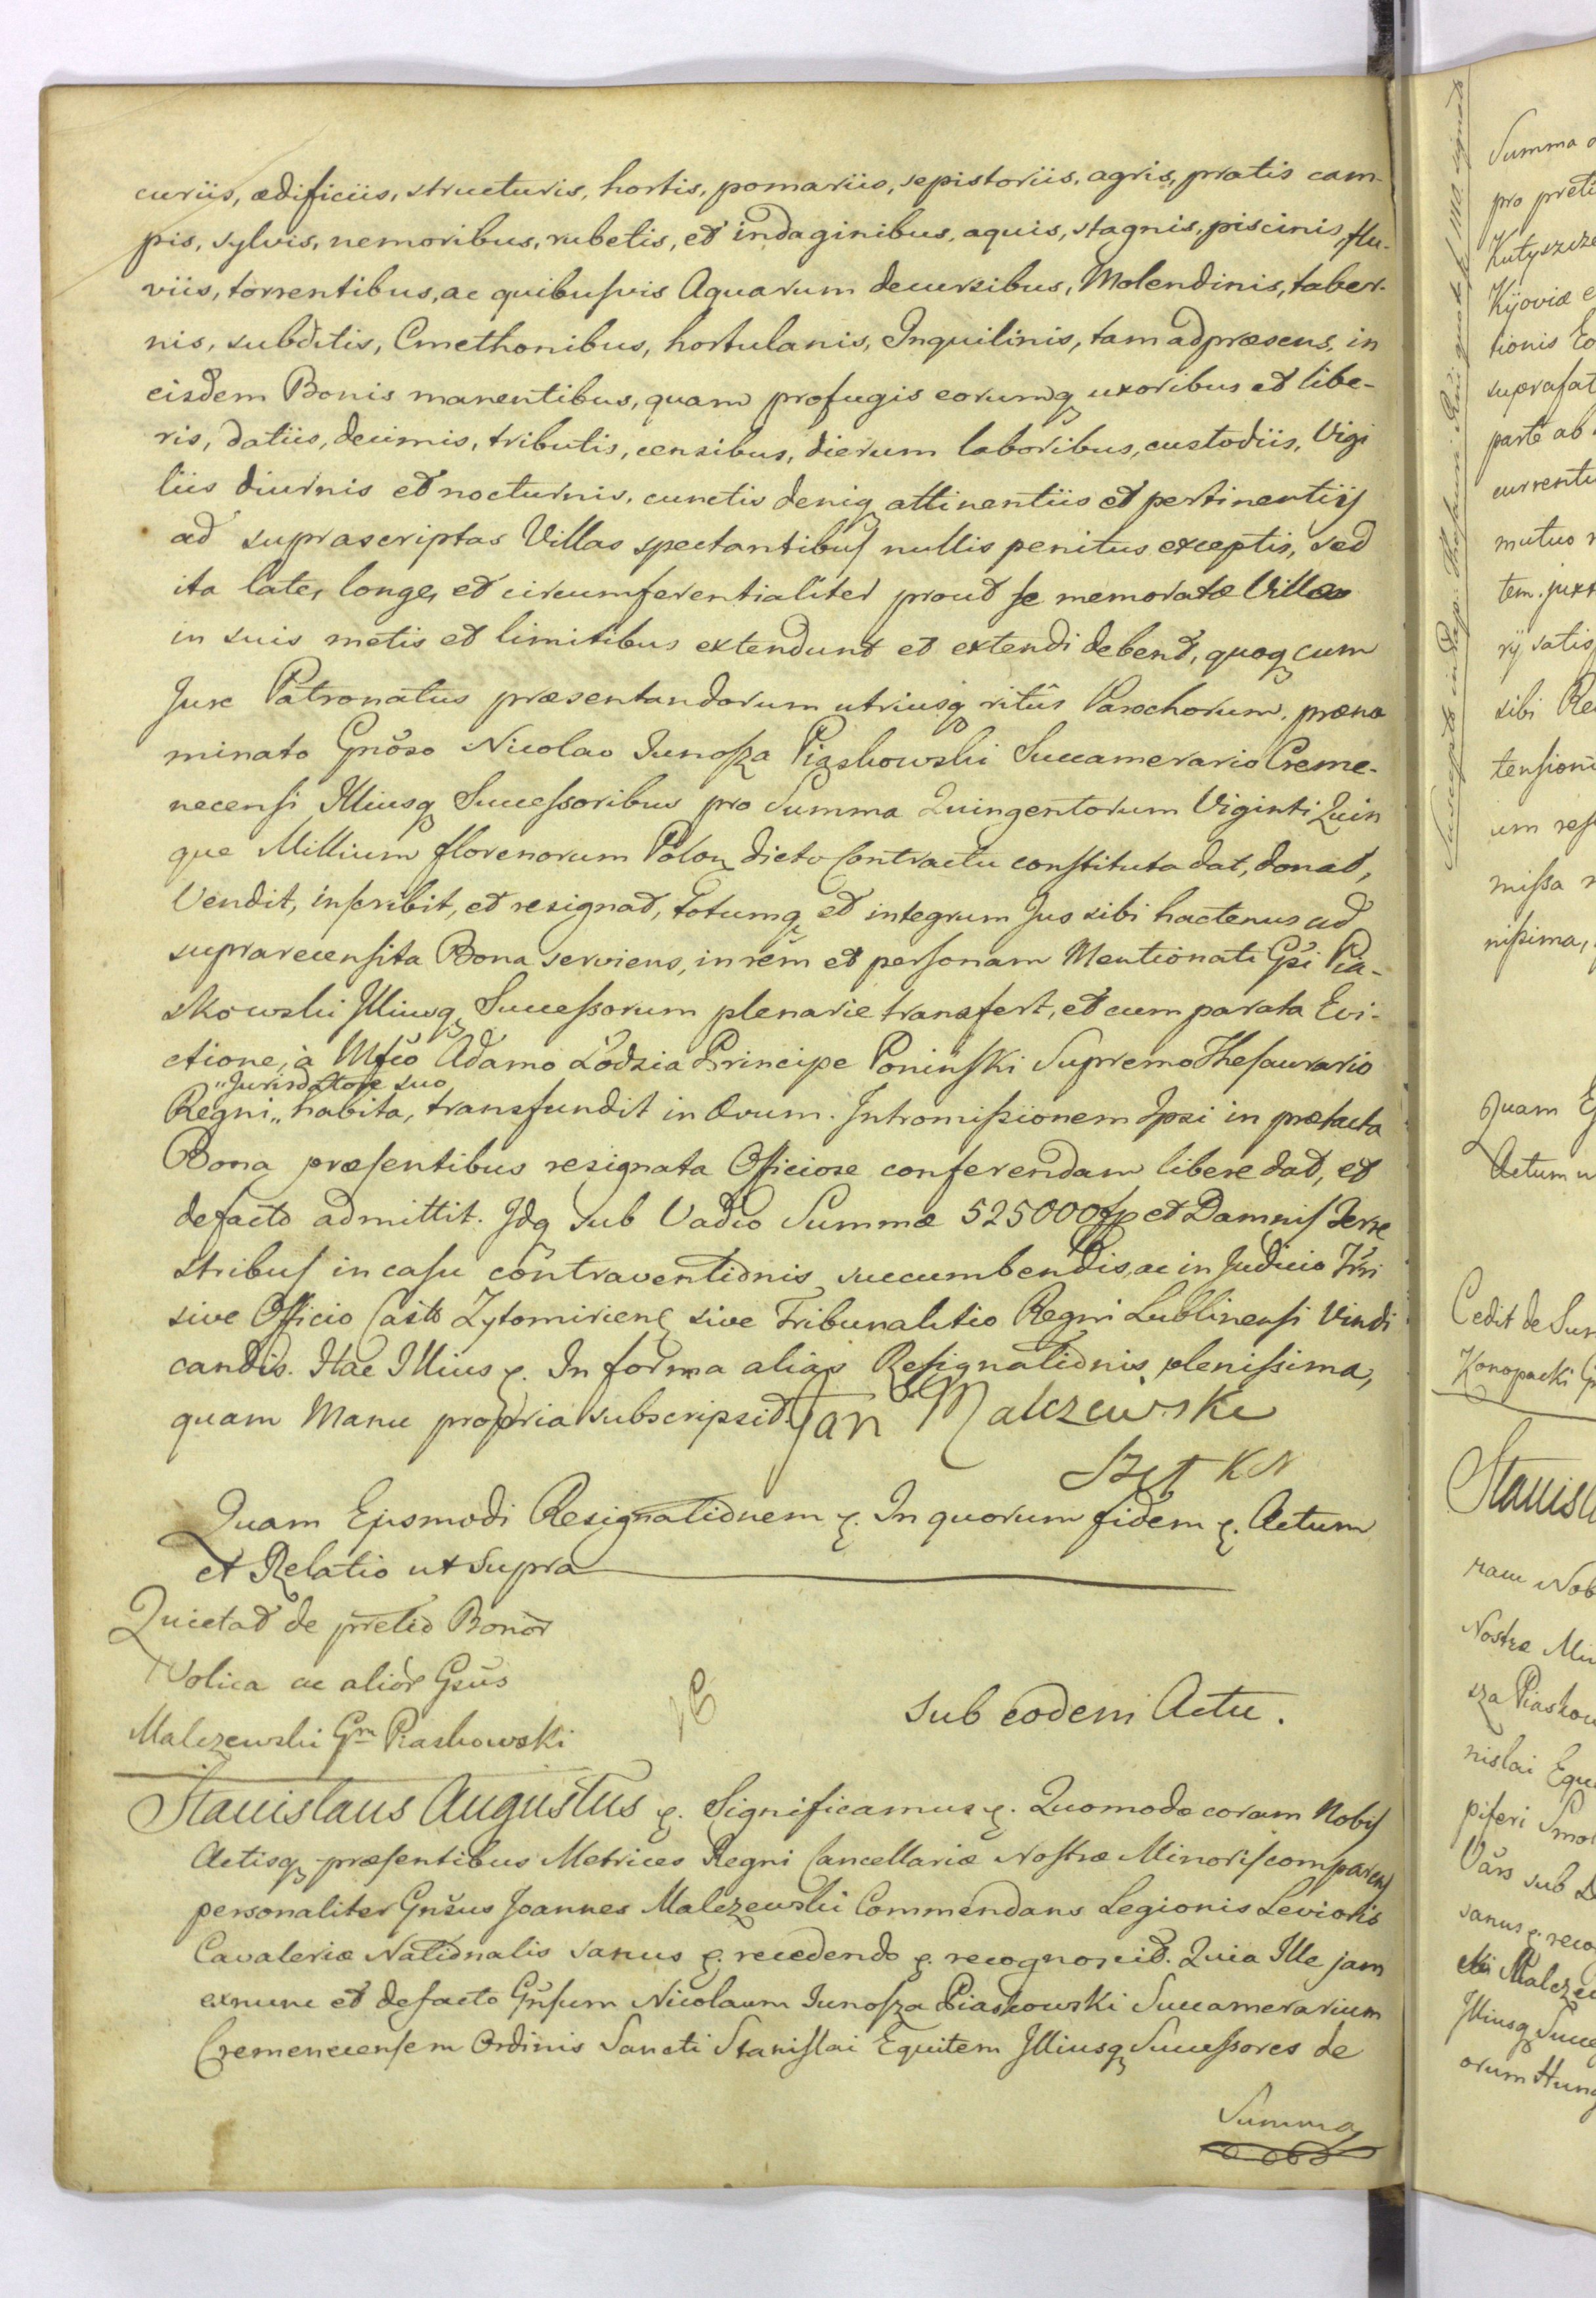 curiis, ædificiis, structuris, hortis, pomariis, sepistoriis, agris, pratis cam-
pis, sylvis, nemoribus, rubetis, et indaginibus, aquis, stagnis, piscinis, flu-
viis, torrentibus, ac quibusvis Aquarum decursibus, Molendinis, taber-
nis, subditis, Cmethonibus, hortulanis, Inquilinis, tam ad præsens, in
eisdem Bonis manentibus, quam profugis eorumq uxoribus et libe-
ris, datiis, decimis, tributis, censibus, dierum laboribus, custodiis, Vigi
liis diurnis et nocturnis, cunctis deniq attinentiis et pertinentiis
ad suprascriptas Villas spectantibus nullis penitus exceptis, sed
ita late, longe, et circumferentialiter prout se memoratæ Villæ
in suis metis et limitibus extendunt et extendi debent, quoq cum
Jure Patronatus præsentandorum utriusq ritûs Parochorum, præno
minato Gnoso Nicolao Junosza Piaskowski Succamerario Creme-
necensi Illiusq Successoribus pro Summa Quingentorum Viginti Quin
que Millium florenorum Polon dicto Contractu constituta dat, donat,
Vendit, inscribit, et resignat, Totumq et integrum Jus sibi hactenus ad
suprarecensita Bona serviens, in rem et personam Mentionati Gsi Pia-
skowski Illiusq Successorum plenarie transfert, et cum parata Evi-
ctione, à Mfico Adamo Łodzia Principe Poninski Supremo Thesaurario
"Jurisdatore suo
Regni " habita, transfundit in Ævum. Intromissionem Ipsi in præfacta
Bona præsentibus resignata Officiose conferendam libere dat, et
defacto admittit. Idq sub Vadio Summæ 525000 fp et Damnis Terre
stribus in casu contraventionis succumbendis, ac in Judicio Trri
sive Officio Casto Zytomiriens sive Tribunalitio Regni Lublinensi Vindi
candis. Hac Illius &. In forma alias Resignationis plenissima,
quam Manu propria subscripsit. Jan Malczewski
Szet KN
Quam Ejusmodi Resignationem &. In quorum fidem &. Actum
et Relatio ut Supra
Quietat de pretio Bonor
Wolica ac alior Gsus
Malczewski Gm Piaskowski
Sub eodem Actu.
Stanislaus Augustus &. Significamus &. Quomodo coram Nobis
Actisq præsentibus Metrices Regni Cancellariæ Nostræ Minoris comparens
personaliter Gnsus Joannes Malczewski Commendans Legionis Levioris
Cavaleriæ Nationalis sanus &. recedendo &. recognoscit. Quia Ille jam
exnunc et defacto Gnsum Nicolaum Junosza Piaskowski Succamerarium
Cremenecensem Ordinis Sancti Stanislai Equitem Illiusq Successores de
Summa
Summa
pro preti
Kutyszcze
Kijoviæ e
tionis
suprafat
parte ab
currenti
mutuo
tem. juxt
satis
sibi Re
tensioni
um
missa
nissima,
Quam E
Actum u
Cedit de Sum
Konopacki
Stanisl
ram Nob
Nostræ Mi
sza Piaskow
nislai Equi
piferi Smol
Vars sub
sanus &. reco
Malczew
Illiusq Succe
orum Hung